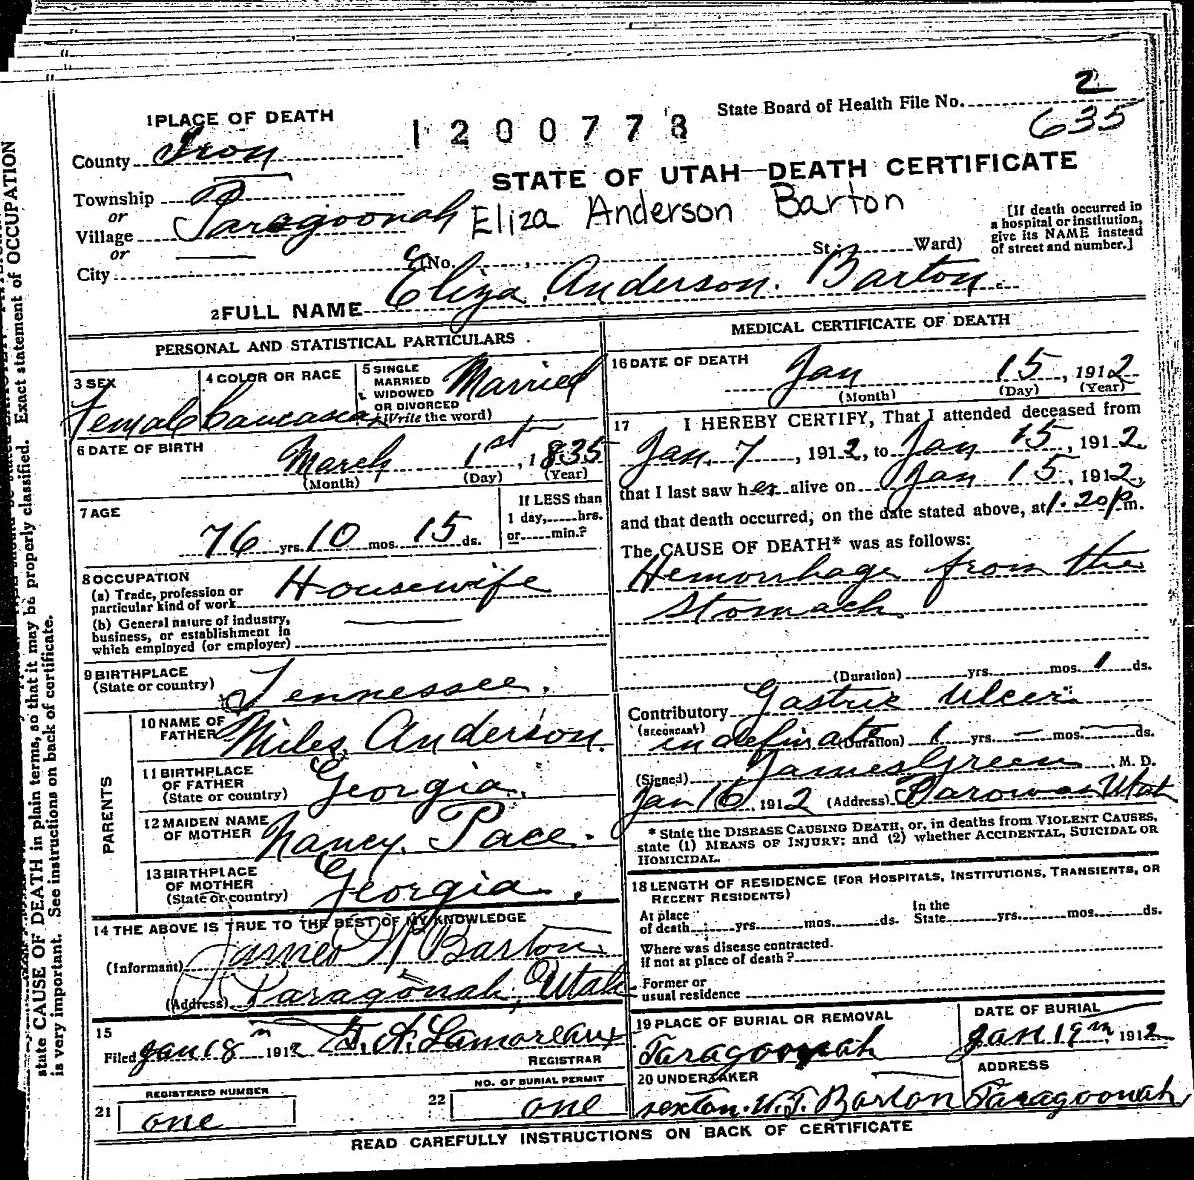 State Board of Health File No. 2
635
1 PLACE OF DEATH
1200778
County Iron
STATE OF UTAH—DEATH CERTIFICATE
Township
or
Village Paragoonah
Eliza Anderson Barton
or
City
No. , St.; Ward)
[If death occurred in
a hospital or institution,
give its NAME instead
of street and number.]
2 FULL NAME Eliza Anderson. Barton.
PERSONAL AND STATISTICAL PARTICULARS
3 SEX
Female
4 COLOR OR RACE
Caucasian
5 SINGLE
MARRIED
WIDOWED
OR DIVORCED
(Write the word)
Married
6 DATE OF BIRTH
March 1st, 1835
(Month) (Day) (Year)
7 AGE
76 yrs. 10 mos. 15 ds.
If LESS than
1 day, hrs.
or min.?
8 OCCUPATION
(a) Trade, profession or
particular kind of work
Housewife
(b) General nature of industry,
business, or establishment in
which employed (or employer)
9 BIRTHPLACE
(State or country)
Tennessee.
PARENTS
10 NAME OF
FATHER
Miles Anderson.
11 BIRTHPLACE
OF FATHER
(State or country)
Georgia.
12 MAIDEN NAME
OF MOTHER
Nancy Pace.
13 BIRTHPLACE
OF MOTHER
(State or country)
Georgia.
14 THE ABOVE IS TRUE TO THE BEST OF MY KNOWLEDGE
(Informant) James H Barton
(Address) Paragonah, Utah
15
Filed Jan 18 1912
REGISTRAR
21
REGISTERED NUMBER
one
22
NO. OF BURIAL PERMIT
one
MEDICAL CERTIFICATE OF DEATH
16 DATE OF DEATH
Jan 15, 1912
(Month) (Day) (Year)
17 I HEREBY CERTIFY, That I attended deceased from
Jan. 7, 1912, to Jan 15, 1912
that I last saw her alive on Jan 15, 1912,
and that death occurred, on the date stated above, at 1.20 p m.
The CAUSE OF DEATH* was as follows:
Hemorrhage from the
Stomach.
(Duration) yrs. mos. 1 ds.
Contributory Gastric Ulcer.
(SECONDARY)
indefinate (Duration) 1 yrs. — mos. — ds.
(Signed) James Green, M. D.
Jan 16, 1912 (Address) Parowan Utah
* State the DISEASE CAUSING DEATH, or, in deaths from VIOLENT CAUSES,
state (1) MEANS OF INJURY; and (2) whether ACCIDENTAL, SUICIDAL OR
HOMICIDAL.
18 LENGTH OF RESIDENCE (FOR HOSPITALS, INSTITUTIONS, TRANSIENTS, OR
RECENT RESIDENTS)
At place
of death yrs. mos. ds.
In the
State yrs. mos. ds.
Where was disease contracted.
if not at place of death?
Former or
usual residence
19 PLACE OF BURIAL OR REMOVAL
Paragoonah
DATE OF BURIAL
Jan. 19th, 1912
20 UNDERTAKER
sexton. W. T. Barton
ADDRESS
Paragoonah
READ CAREFULLY INSTRUCTIONS ON BACK OF CERTIFICATE
state CAUSE OF DEATH in plain terms, so that it may be properly classified. Exact statement of OCCUPATION
is very important. See instructions on back of certificate.